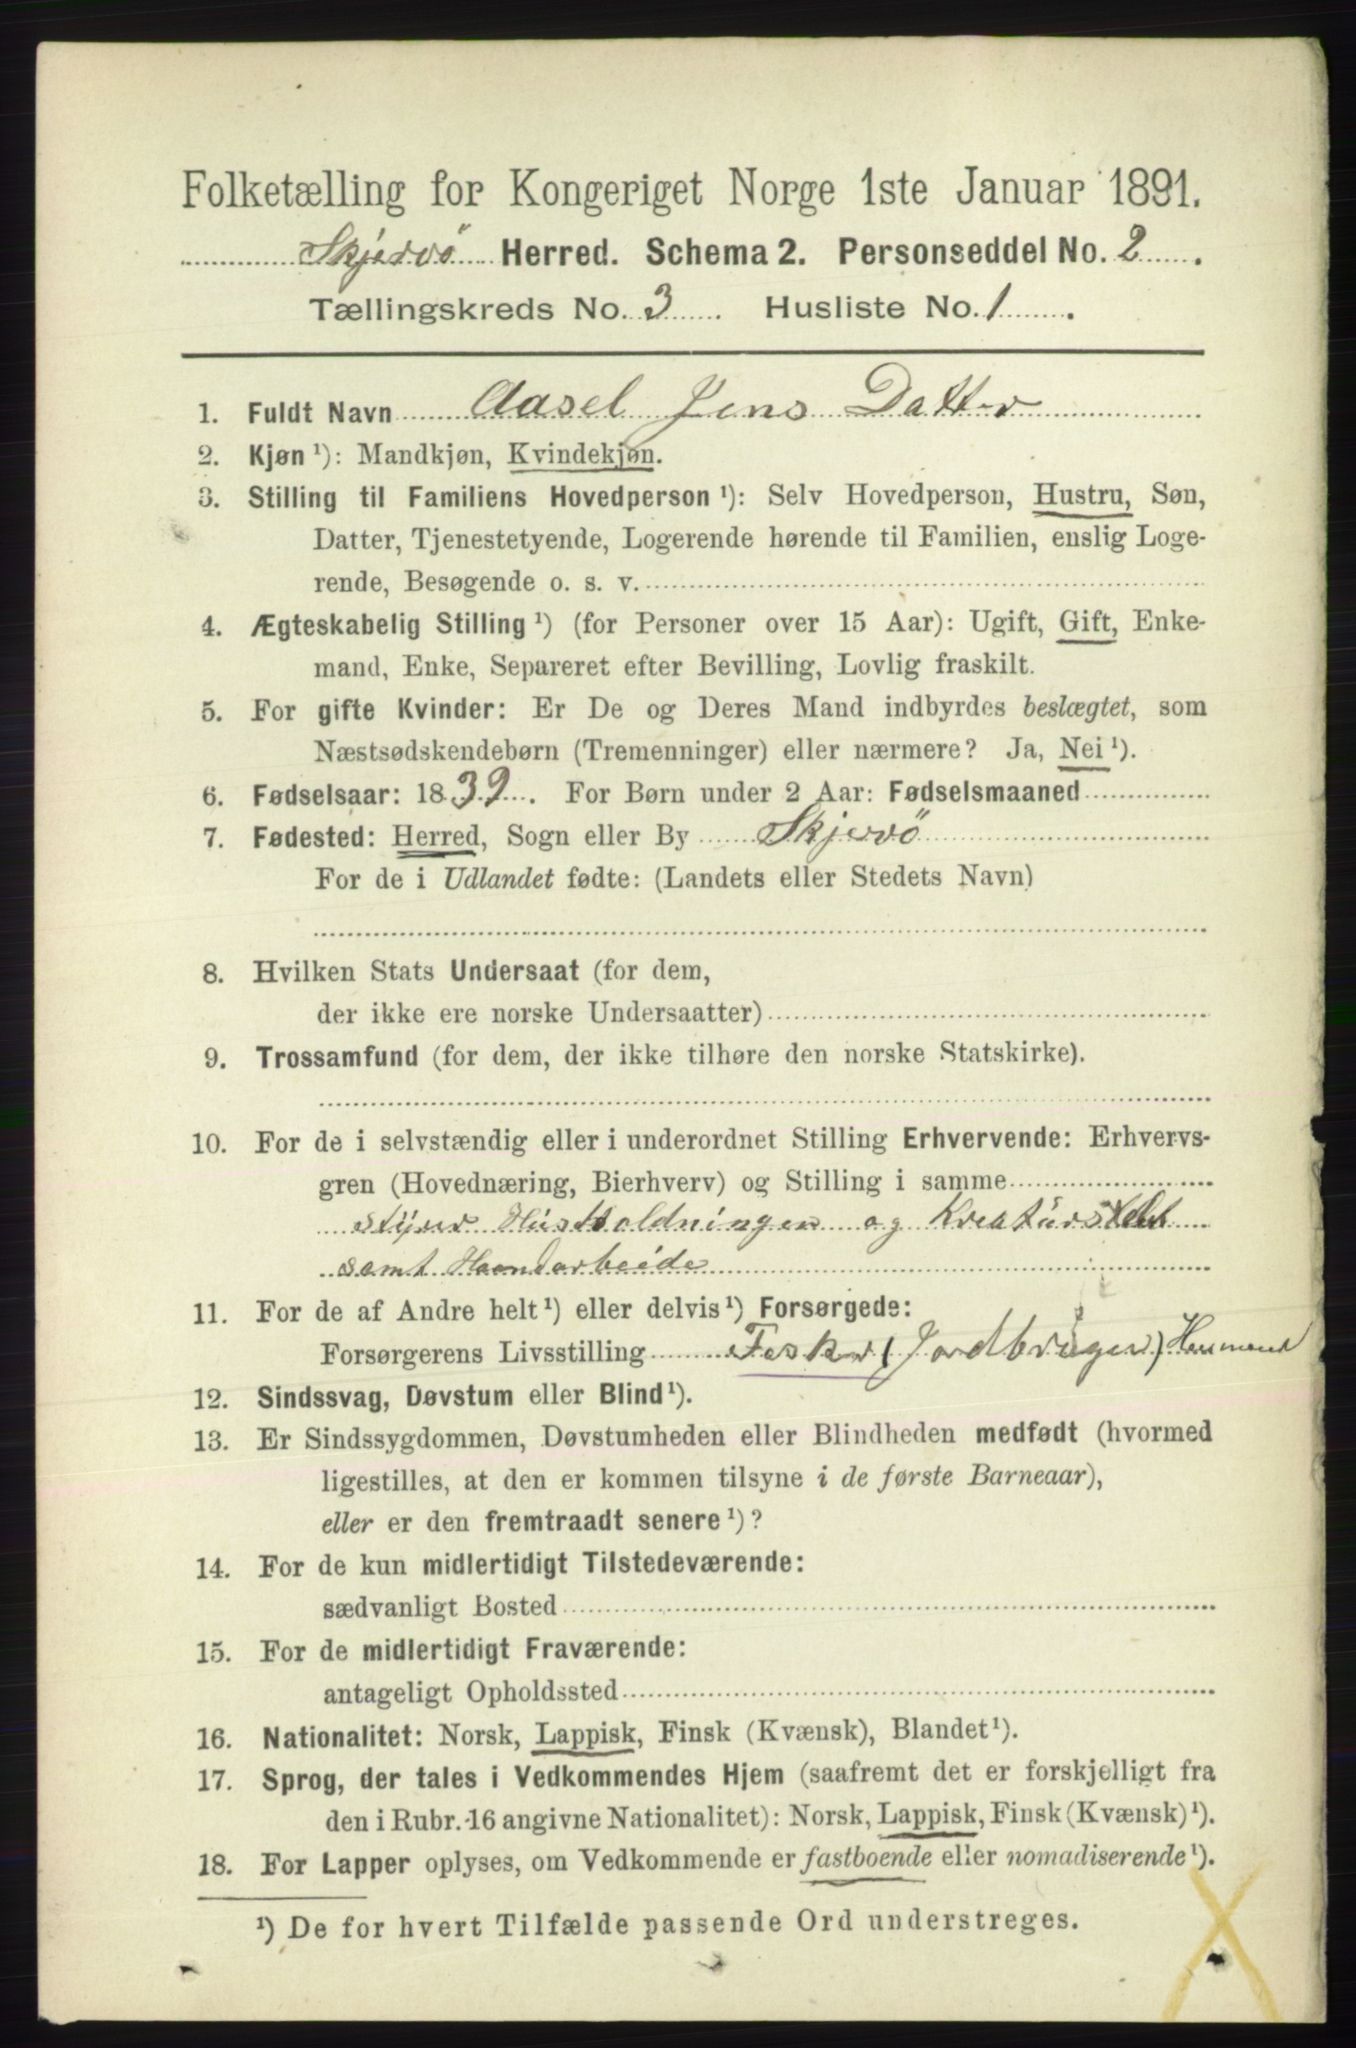 Folketælling for Kongeriget Norge 1ste Januar 1891.
Skjervö Herred. Schema 2. Personseddel No. 2.
Tællingskreds No. 3. Husliste No. 1.
1. Fuldt Navn Aasel Jens Datter
2. Kjøn ¹): Mandkjøn, Kvindekjøn.
3. Stilling til Familiens Hovedperson ¹): Selv Hovedperson, Hustru, Søn,
Datter, Tjenestetyende, Logerende hørende til Familien, enslig Loge-
rende, Besøgende o. s. v.
4. Ægteskabelig Stilling ¹) (for Personer over 15 Aar): Ugift, Gift, Enke-
mand, Enke, Separeret efter Bevilling, Lovlig fraskilt.
5. For gifte Kvinder: Er De og Deres Mand indbyrdes beslægtet, som
Næstsødskendebørn (Tremenninger) eller nærmere? Ja, Nei ¹).
6. Fødselsaar: 1839. For Børn under 2 Aar: Fødselsmaaned
7. Fødested: Herred, Sogn eller By Skjervö
For de i Udlandet fødte: (Landets eller Stedets Navn)
8. Hvilken Stats Undersaat (for dem,
der ikke ere norske Undersaatter)
9. Trossamfund (for dem, der ikke tilhøre den norske Statskirke).
10. For de i selvstændig eller i underordnet Stilling Erhvervende: Erhvervs-
gren (Hovednæring, Bierhverv) og Stilling i samme
styrer Husholdningen og Kreaturstelet
samt Haandarbeide
11. For de af Andre helt ¹) eller delvis ¹) Forsørgede:
Forsørgerens Livsstilling Fisker (Jordbruger)
12. Sindssvag, Døvstum eller Blind ¹).
13. Er Sindssygdommen, Døvstumheden eller Blindheden medfødt (hvormed
ligestilles, at den er kommen tilsyne i de første Barneaar),
eller er den fremtraadt senere ¹)?
14. For de kun midlertidigt Tilstedeværende:
sædvanligt Bosted
15. For de midlertidigt Fraværende:
antageligt Opholdssted
16. Nationalitet: Norsk, Lappisk, Finsk (Kvænsk), Blandet ¹).
17. Sprog, der tales i Vedkommendes Hjem (saafremt det er forskjelligt fra
den i Rubr. 16 angivne Nationalitet): Norsk, Lappisk, Finsk (Kvænsk) ¹).
18. For Lapper oplyses, om Vedkommende er fastboende eller nomadiserende ¹).
¹) De for hvert Tilfælde passende Ord understreges.